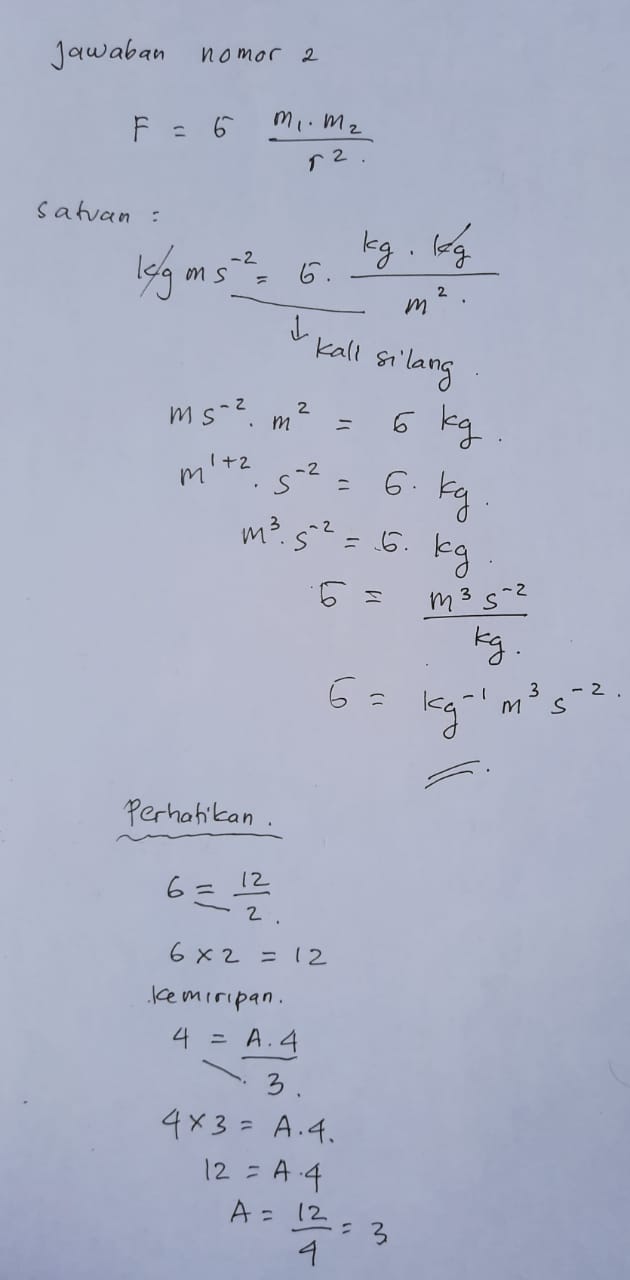 Jawaban nomor 2
F = G m₁.m₂ / r².
Satuan :
kg m s⁻² = G. kg . kg / m².
↓ kali silang.
m s⁻². m² = G kg.
m¹⁺². s⁻² = G. kg.
m³. s⁻² = G. kg.
G = m³ s⁻² / kg.
G = kg⁻¹ m³ s⁻².
Perhatikan.
6 = 12 / 2.
6 x 2 = 12
kemiripan.
4 = A.4 / 3.
4 x 3 = A.4.
12 = A.4
A = 12 / 4 = 3